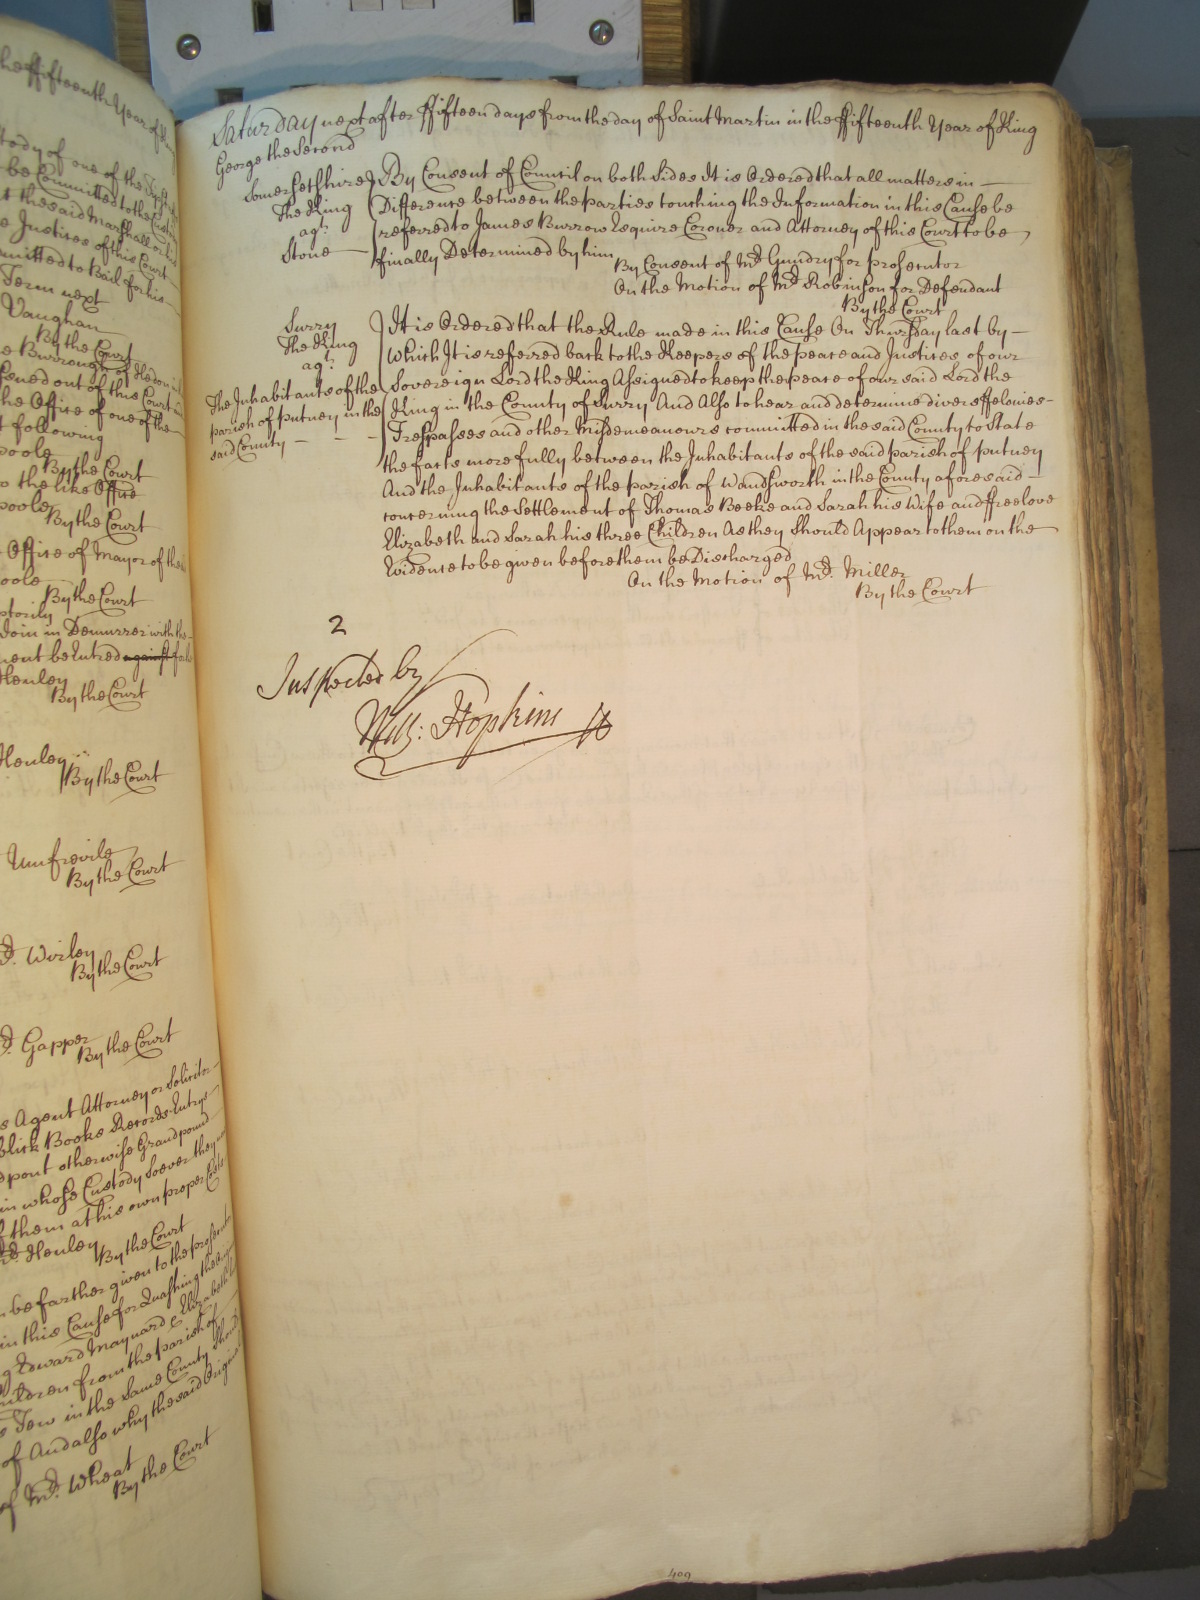 he ffifteenth Year of King
tody of one of the Justices
be Committed to the Custody
t the said Marshall or his
e Justices of this Court
mitted to Bail for his
Term next
Vaughan
By the Court
e Burrough of Hedon in
ssened out of this Court in
he Office of one of the
t following
poole
By the Court
o the like Office
poole
By the Court
Office of Mayor of the
oole
By the Court
ptorily
Join in Demurrer with the
ment be Entred against for
Henley
By the Court
Henley
By the Court
Umfrevile
By the Court
Mr. Wirley
By the Court
Mr. Gapper
By the Court
s Agent Attorney or Solicitor
blick Books Records Entrys
dpont otherwise Grandpond
in whose Custody Soever they
f them at his own proper Costs
Mr. Henley
By the Court
be farther given to the prosecutor
in this Cause for Quashing the
g Edward Maynard & Elizabeth
ildren from the parish of
Tew in the Same County Should
of And also why the said Original
of Mr. Wheat
By the Court
Saturday next after ffifteen days from the day of Saint Martin in the ffifteenth Year of King
George the Second
Somersetshire By Consent of Council on both Sides It is Ordered that all matters in
The King Difference between the parties touching the Information in this Cause be
agt. referred to James Burrow Esquire Coroner and Attorney of this Court to be
Stone finally Determined by him
By Consent of Mr. Gundry for prosecutor
On the Motion of Mr. Robinson for Defendant
By the Court
Surry It is Ordered that the Rule made in this Cause On Thursday last by
The King which It is referred back to the Keepers of the peace and Justices of our
agt. Sovereign Lord the King Assigned to keep the peace of our said Lord the
The Inhabitants of the King in the County of Surry And Also to hear and determine divers ffelonies
parish of putney in the Trespasses and other Misdemeanours committed in the said County to State
said County the facts more fully between the Inhabitants of the said parish of putney
And the Inhabitants of the parish of Wandsworth in the County aforesaid
concerning the Settlement of Thomas Beeke and Sarah his Wife and ffreelove
Elizabeth and Sarah his three Children As they Should Appear to them on the
Evidence to be given before them be Discharged
On the Motion of Mr. Miller
By the Court
2
Inspected by
Will: Hopkins
409